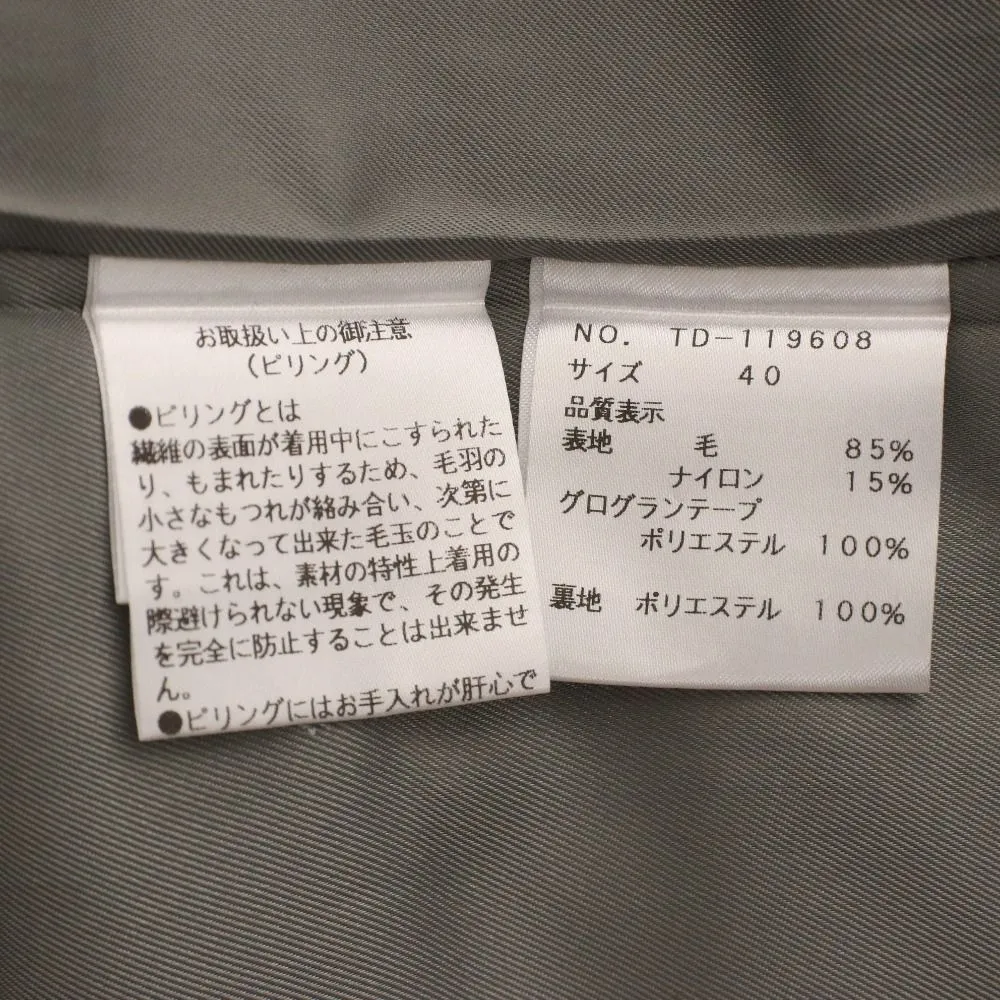 お取扱い上の御注意
(ピリング)
●ピリングとは
繊維の表面が着用中にこすられた
り、もまれたりするため、毛羽の
小さなもつれが絡み合い、次第に
大きくなって出来た毛玉のことで
す。これは、素材の特性上着用の
際避けられない現象で、その発生
を完全に防止することは出来ませ
ん。
●ピリングにはお手入れが肝心で
NO. TD-119608
サイズ 40
品質表示
表地 毛 85%
ナイロン 15%
グログランテープ
ポリエステル 100%
裏地 ポリエステル 100%